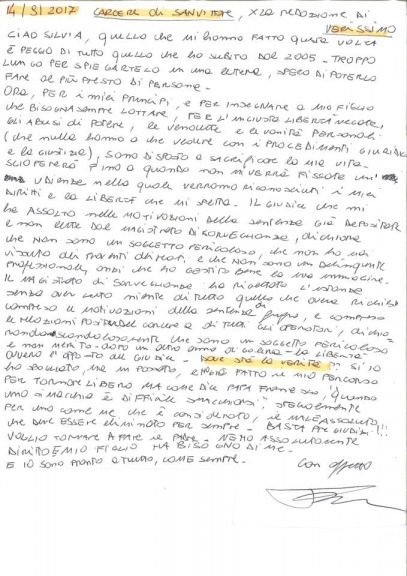 14/8/2017 CARCERE di SANVITTORE, X LA REDAZIONE DI
VERISSIMO
CIAO SILVIA, quello che mi hanno fatto questa VOLTA
È PEGGIO DI TUTTO quello che ho subito DAL 2005 - TROPPO
LUNGO PER SPIEGARTELO in una lettera, SPERO DI POTERLO
FARE al più PRESTO DI PERSONA.
ORA, PER i miei PRINCIPI, E PER INSEGNARE A MIO FIGLIO
che BISOGNA SEMPRE LOTTARE, PER L'INGIUSTA LIBERTÀ NEGATA,
GLI ABUSI DI POTERE, le VENDETTE E le VANITÀ PERSONALI
(che nulla hanno a che vedere con i PROCEDIMENTI GIUDIZIARI
e la GIUSTIZIA), SONO DISPOSTO A SACRIFICARE la mia VITA.
SCIOPERERÒ FINO A quando non mi VERRÀ FISSATA un'
UDIENZA nella quale verranno RICONOSCIUTI i miei
DIRITTI E la LIBERTÀ che mi SPETTA. IL GIUDICE che mi
ha ASSOLTO nelle MOTIVAZIONI della sentenza GIÀ DEPOSITATA
e non lette DAL MAGISTRATO DI SORVEGLIANZA, dichiara
che NON sono un SOGGETTO PERICOLOSO, che non ho mai
vissuto dei proventi di reati, e che NON sono un DELINQUENTE
PROFESSIONALE, anzi che ho GESTITO BENE la mia immagine.
IL MAGISTRATO DI SORVEGLIANZA ha RIGETTATO L'ISTANZA
senza aver letto niente di tutto quello che aveva RICHIESTO
compreso le MOTIVAZIONI della SENTENZA, e compreso
le RELAZIONI POSITIVE del carcere e di tutti GLI OPERATORI, dichia-
rando scandalosamente che sono un SOGGETTO PERICOLOSO
e non merito - dopo un altro anno di GALERA - la LIBERTÀ
ovvero L'OPPOSTO del GIUDICE - DOVE STA la VERITÀ?! SÌ IO
ho sbagliato, ma in passato, e ho FATTO il MIO PERCORSO
PER TORNARE LIBERO MA COME DICE PAPA FRANCESCO, "QUANDO
uno si macchia è DIFFICILE SMACCHIARSI",
PER uno come me, che è considerato, il MALE ASSOLUTO,
che deve ESSERE ELIMINATO PER SEMPRE - BASTA PREGIUDIZI!!!
VOGLIO TORNARE A FARE IL PADRE - NE HO ASSOLUTAMENTE
DIRITTO E MIO FIGLIO HA BISOGNO DI ME.
E IO SONO PRONTO A TUTTO, COME SEMPRE.
Con affetto